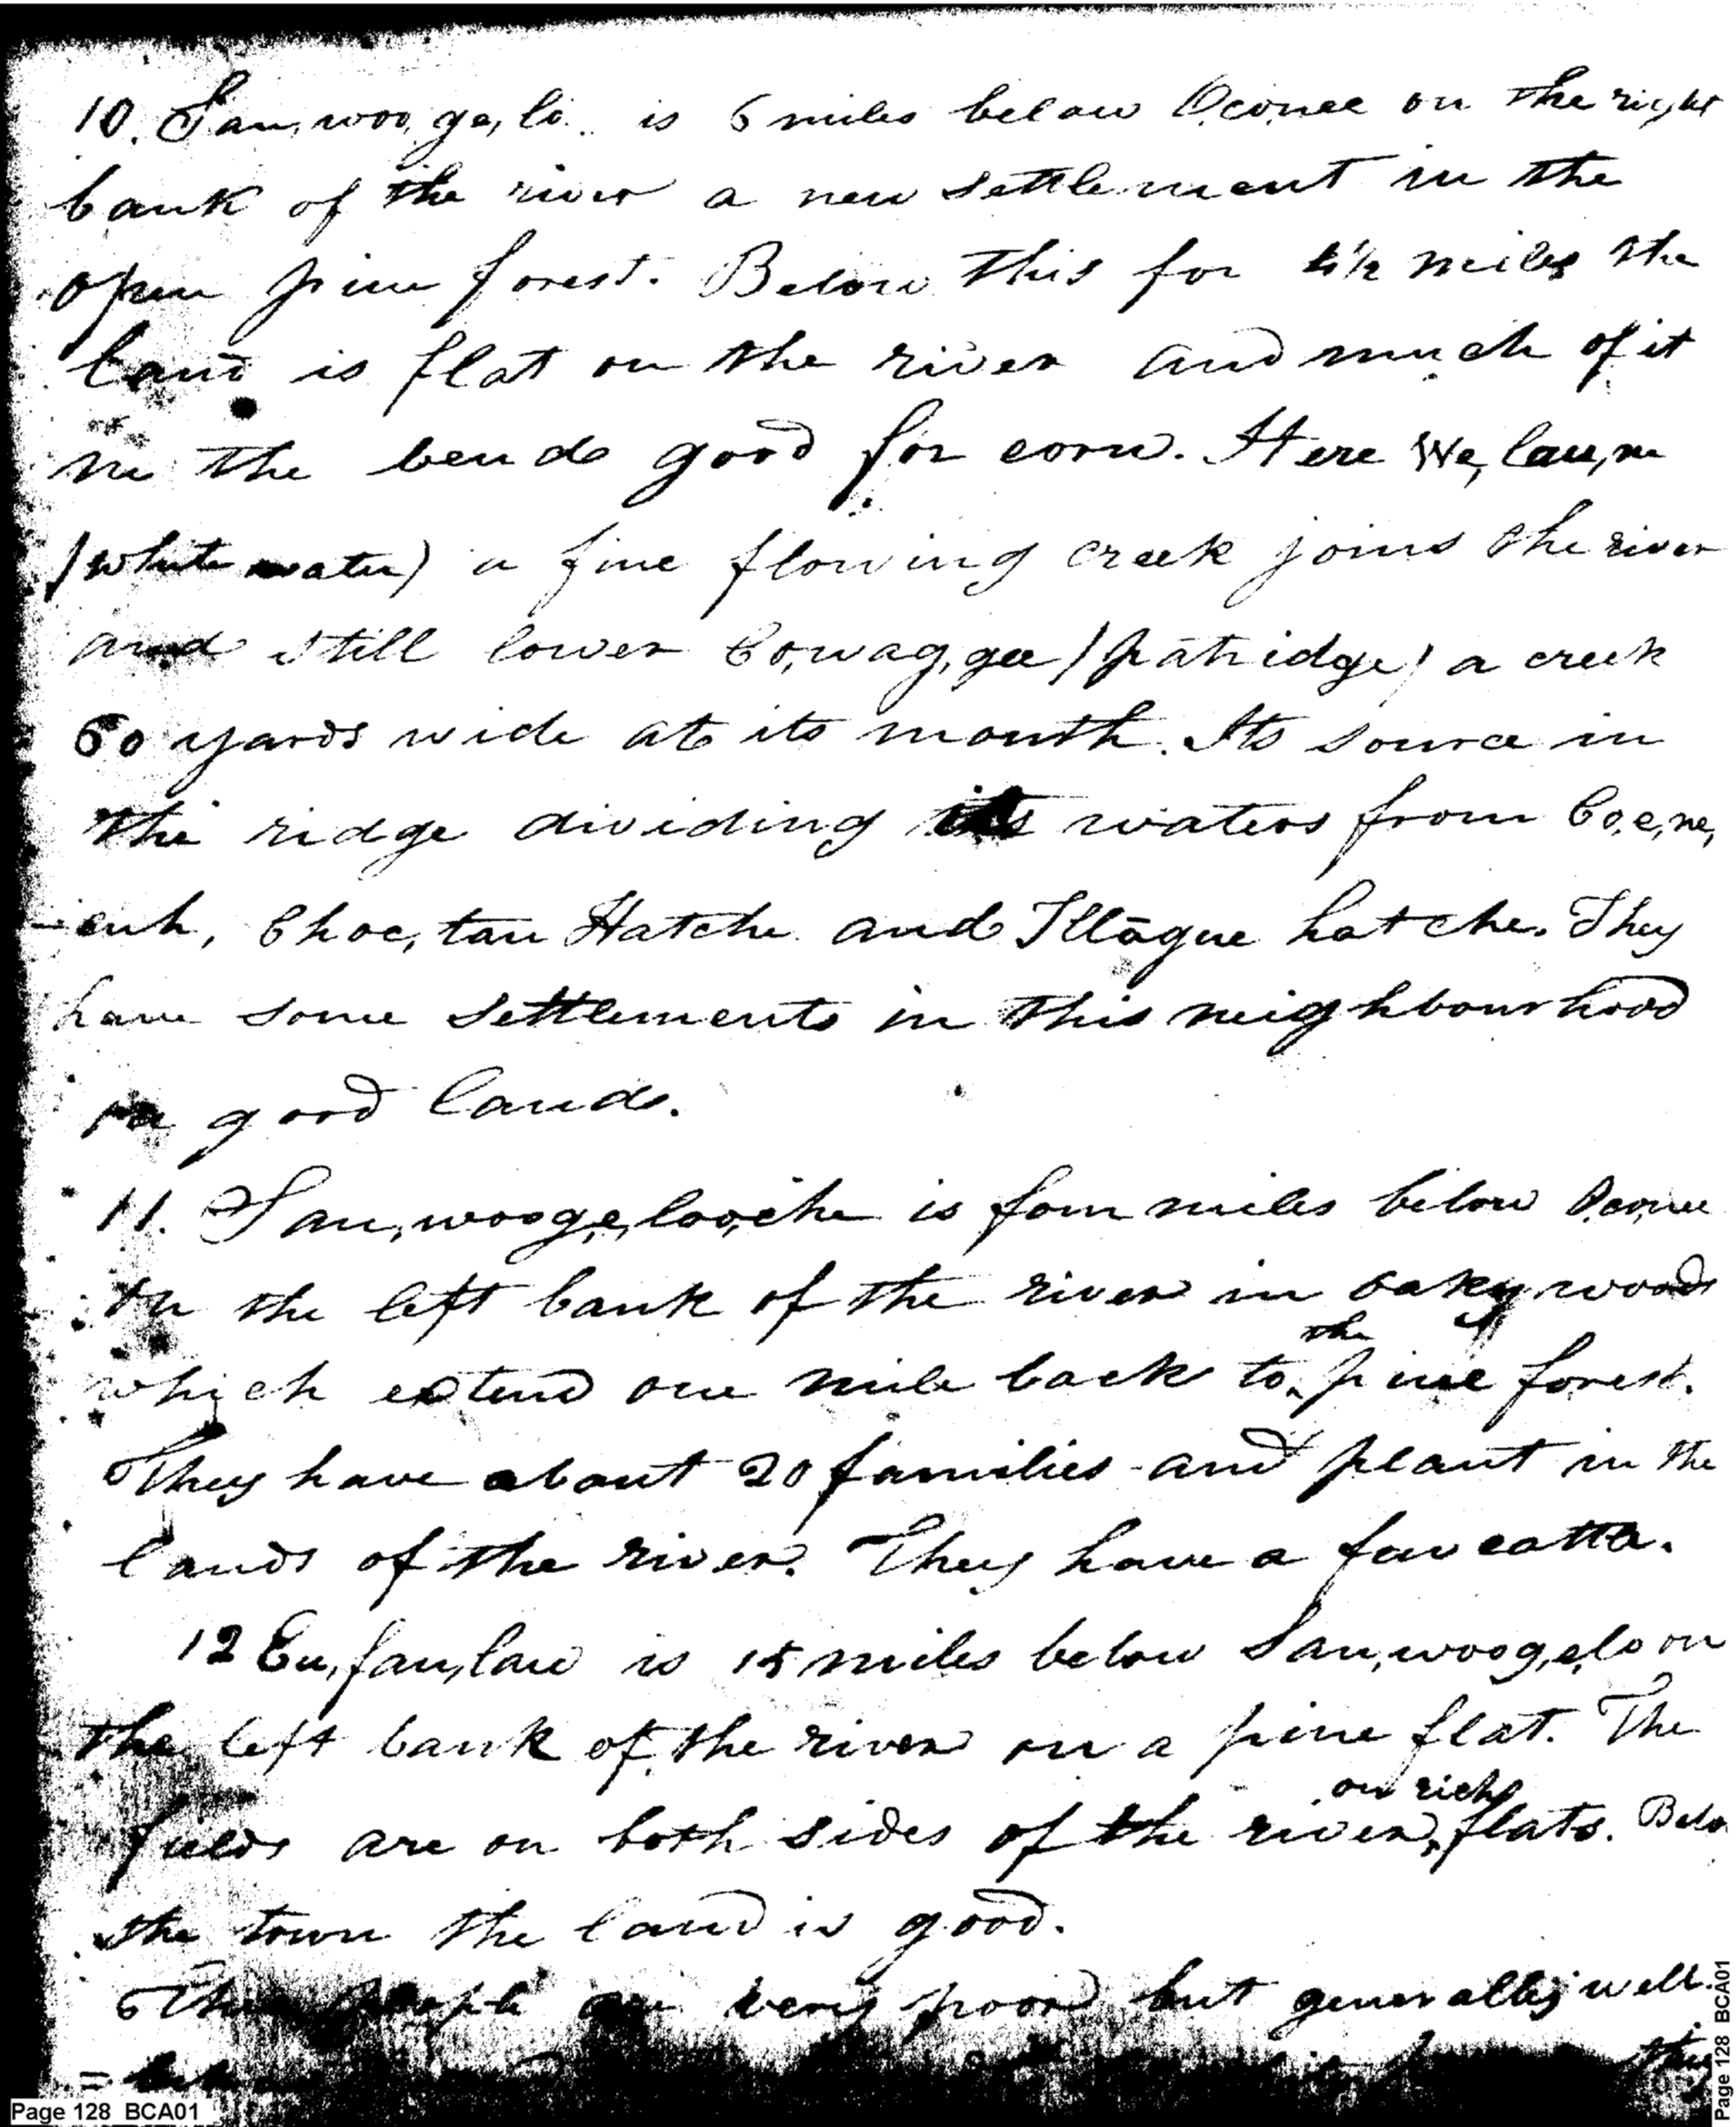 10. Sau,woo,ge,lo.. is 6 miles below O,co,nee on the right
bank of the river a new settlement in the
open pine forest. Below this for 4½ miles the
land is flat on the river and much of it
in the bends good for corn. Here We,lau,ne
/white water) a fine flowing creek joins the river
and still lower Co,wag,gee /patridge/ a creek
60 yards wide at its mouth. Its source in
the ridge dividing its waters from Co,e,ne,
-cuh, Choc,tau Hatche and Illāgue hatche. They
have some settlements in this neighbourhood
on good lands.
11. Sau,woog,e,loo,che is four miles below O,co,nee
on the left bank of the river in oaky woods
which extend one mile back to the pine forest.
They have about 20 families and plant in the
lands of the river. They have a few cattle.
12 Eu,fau,lau is 15 miles below Sau,woog,e,lo on
the left bank of the river on a pine flat. The
fields are on both sides of the river, on rich flats. Belo
the town the land is good.
The people are very poor but generally well